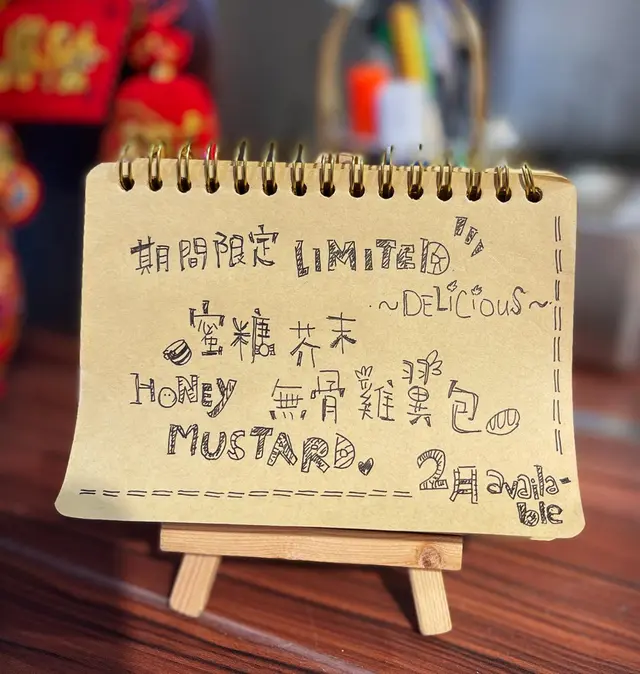 期間限定 LIMITED
~DELiCiOUS~
蜜糖芥末
HONEY 無骨雞翼包
MUSTARD
2月 availa-
ble